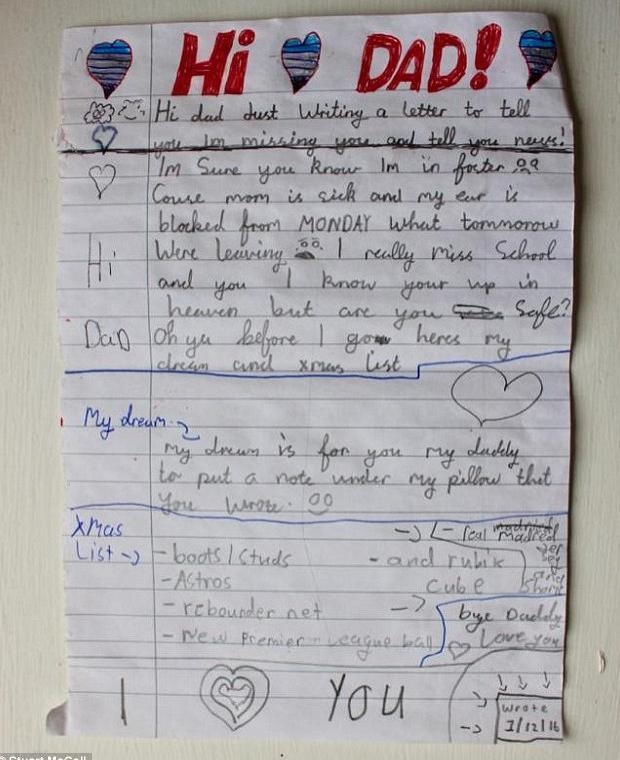 Hi DAD!
Hi dad Just Writing a letter to tell
you Im missing you and tell you news!
Im Sure you know Im in foster
Couse mom is sick and my ear is
blocked from MONDAY What tommorow
Were leaving I really miss School
Hi
and you I know your up in
heaven but are you Safe?
DaD
Oh ya before I go heres my
dream and xmas list
My dream
My dream is for you my daddy
to put a note under my pillow that
You Wrote.
Xmas
List
- boots/studs
- Astros
- rebounder net
- New Premier-League ball
- real madred
- and rubik
cube
bye Daddy
Love you
I YOU
Wrote
1/12/16
Stuart McCall